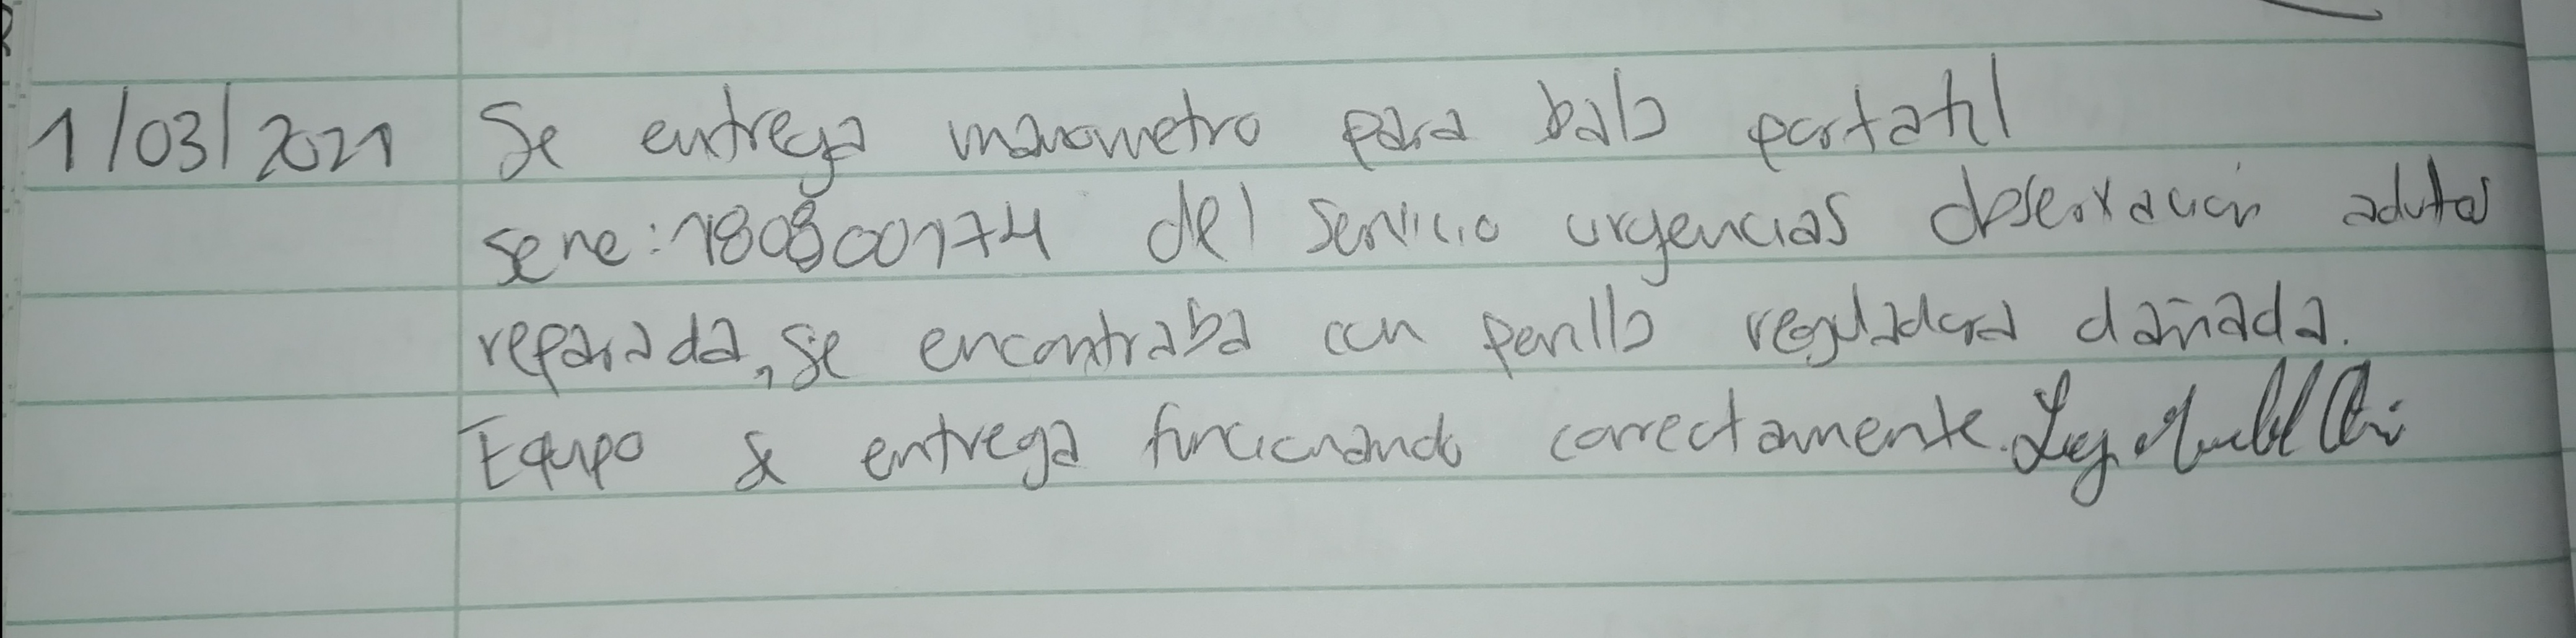 1/03/2021 Se entrega manometro para bala portatil
serie: 180800174 del servicio urgencias observación adultos
reparada, se encontraba con perilla reguladora dañada.
Equipo se entrega funcionando correctamente.